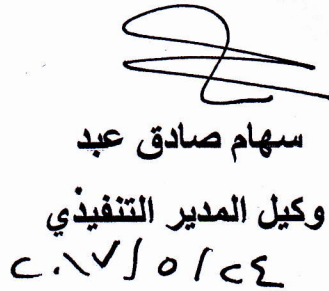 سهام صادق عبد
وكيل المدير التنفيذي
٢٠١٧/٥/٢٤